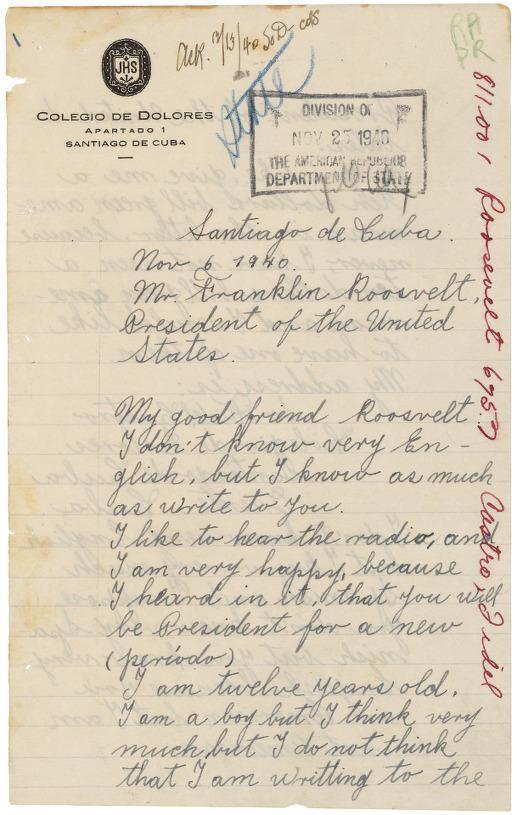 1
Ack. 12/13/40
State
JHS
COLEGIO DE DOLORES
APARTADO 1
SANTIAGO DE CUBA
DIVISION OF
NOV 25 1940
THE AMERICAN REPUBLICS
DEPARTMENT OF STATE
RA
DR
811.001 Roosevelt 6957
Castro, Fidel
Santiago de Cuba.
Nov 6 1940.
Mr. Franklin Roosvelt,
President of the United
States.
My good friend Roosvelt:
I don't know very En-
glish, but I know as much
as write to you.
I like to hear the radio, and
I am very happy, because
I heard in it, that you will
be President for a new
(período)
I am twelve years old.
I am a boy but I think very
much, but I do not think
that I am writting to the